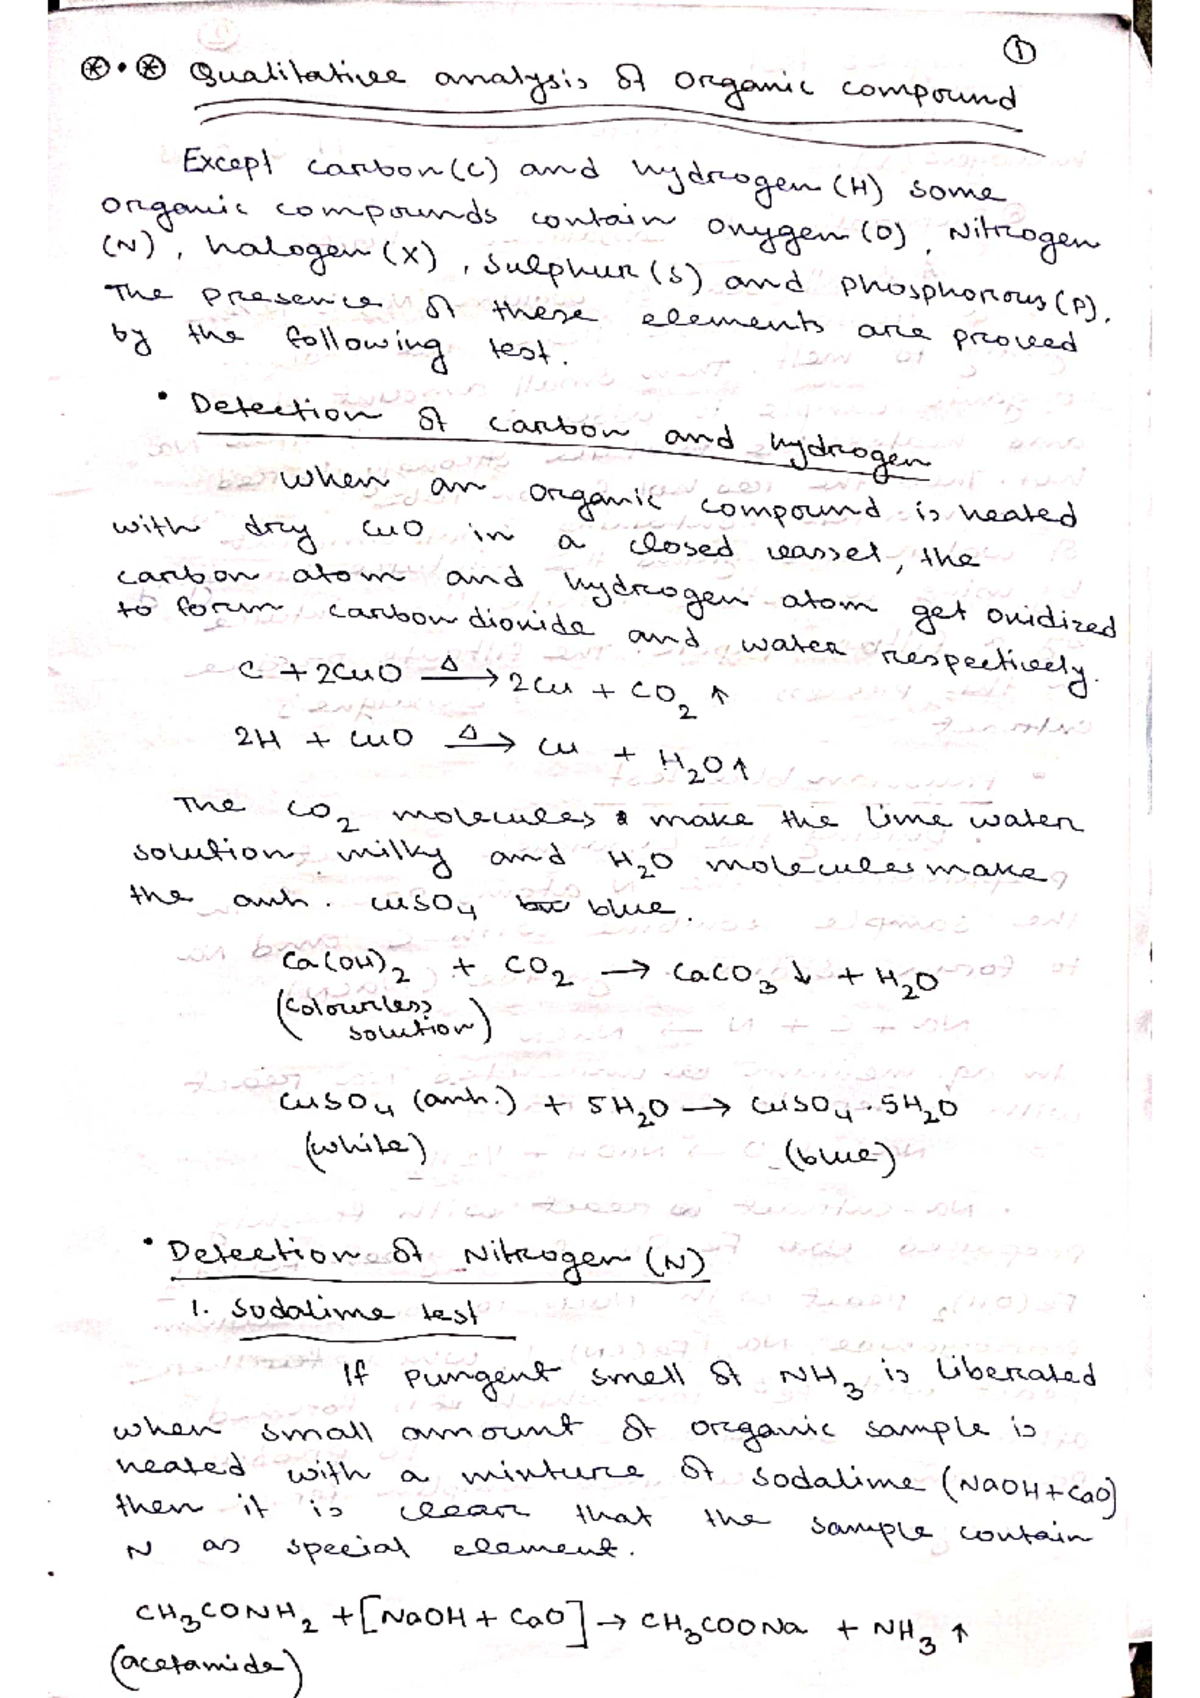 ①
⊛ • ⊛ Qualitative analysis of organic compound
Except carbon (C) and hydrogen (H) some
organic compounds contain oxygen (O), Nitrogen
(N), halogen (X), sulphur (S) and phosphorous (P).
The presence of these elements are proved
by the following test.
• Detection of carbon and hydrogen
When an organic compound is heated
with dry CuO in a closed vassel, the
carbon atom and hydrogen atom get oxidized
to form carbondioxide and water respectively.
C + 2CuO —Δ→ 2Cu + CO₂ ↑
2H + CuO —Δ→ Cu + H₂O ↑
The CO₂ molecules make the lime water
solution milky and H₂O molecules make
the anh. CuSO₄ blue.
Ca(OH)₂ + CO₂ → CaCO₃ ↓ + H₂O
(colourless
solution)
CuSO₄ (anh.) + 5H₂O → CuSO₄·5H₂O
(white) (blue)
• Detection of Nitrogen (N)
1. Sodalime test
If pungent smell of NH₃ is liberated
when small amount of organic sample is
heated with a mixture of sodalime (NaOH + CaO)
then it is clear that the sample contain
N as special element.
CH₃CONH₂ + [NaOH + CaO] → CH₃COONa + NH₃ ↑
(acetamide)